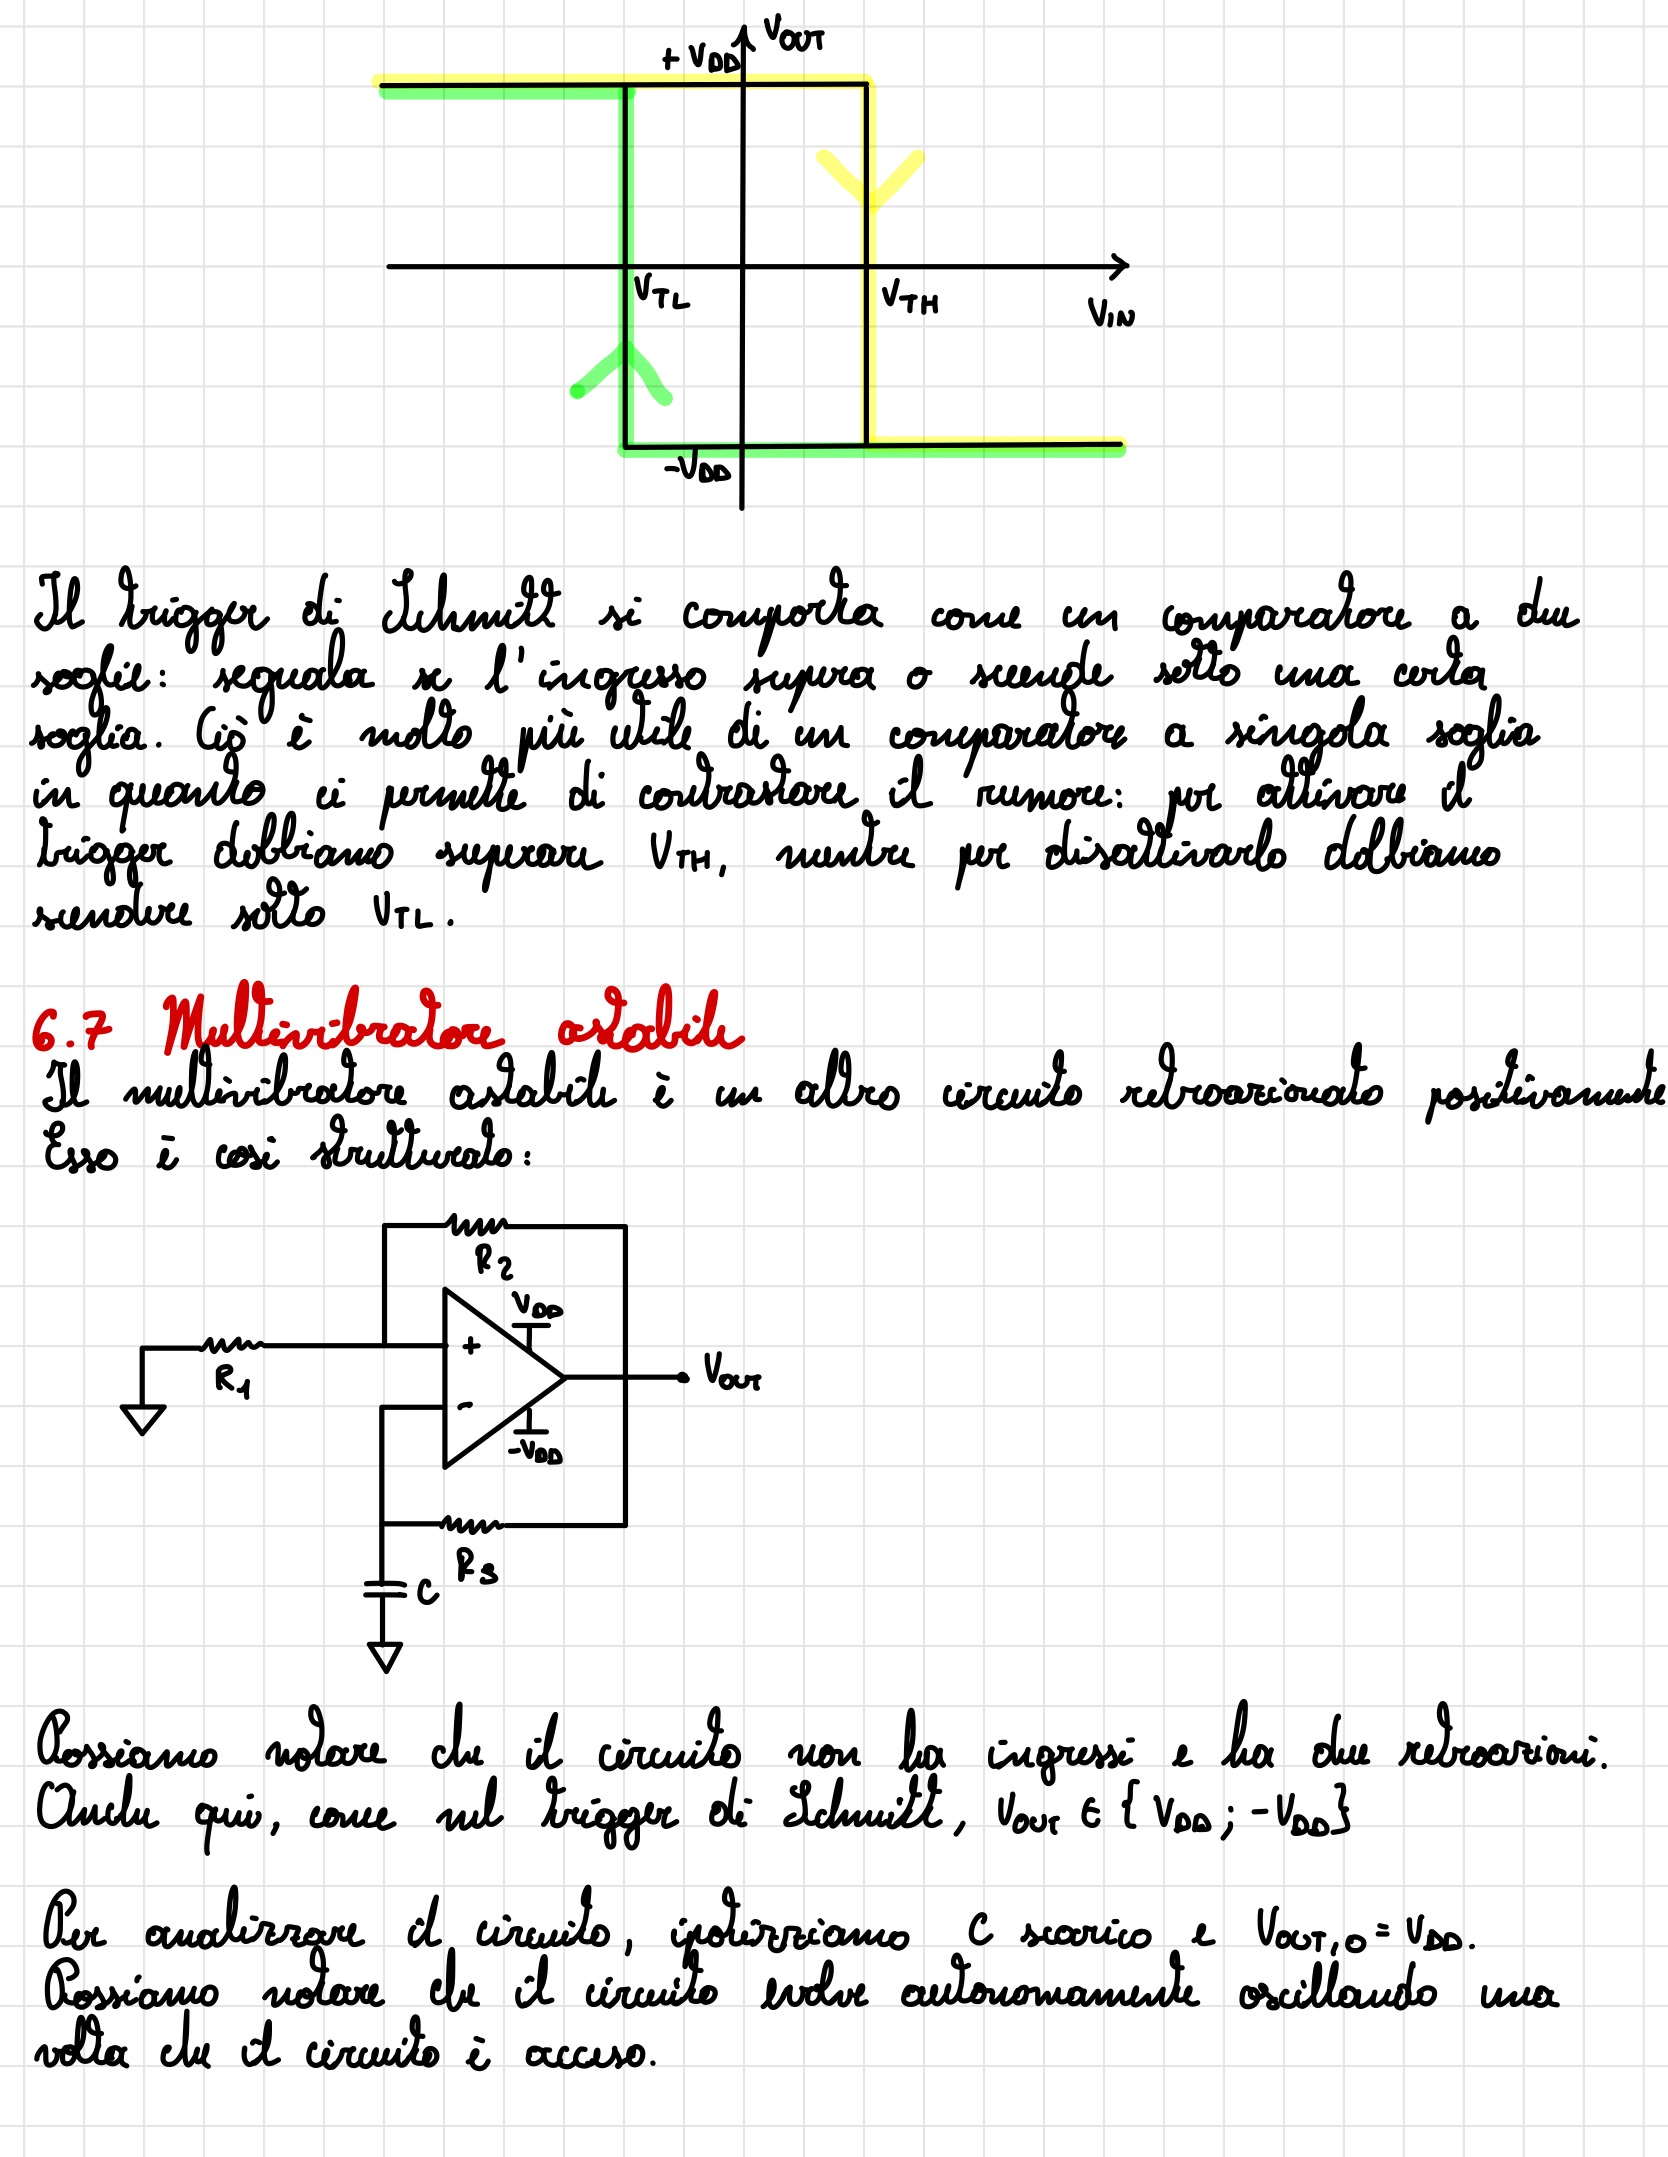 V_OUT
+V_DD
V_TL
V_TH
V_IN
-V_DD
Il trigger di Schmitt si comporta come un comparatore a due
soglie: segnala se l'ingresso supera o scende sotto una certa
soglia. Ciò è molto più utile di un comparatore a singola soglia
in quanto ci permette di contrastare il rumore: per attivare il
trigger dobbiamo superare V_TH, mentre per disattivarlo dobbiamo
scendere sotto V_TL.
6.7 Multivibratore astabile
Il multivibratore astabile è un altro circuito retroazionato positivamente
Esso è così strutturato:
R_2
V_DD
+
R_1
V_OUT
-
-V_DD
R_3
C
Possiamo notare che il circuito non ha ingressi e ha due retroazioni.
Anche qui, come nel trigger di Schmitt, V_OUT ∈ {V_DD; -V_DD}
Per analizzare il circuito, ipotizziamo C scarico e V_OUT,0 = V_DD.
Possiamo notare che il circuito evolve autonomamente oscillando una
volta che il circuito è acceso.